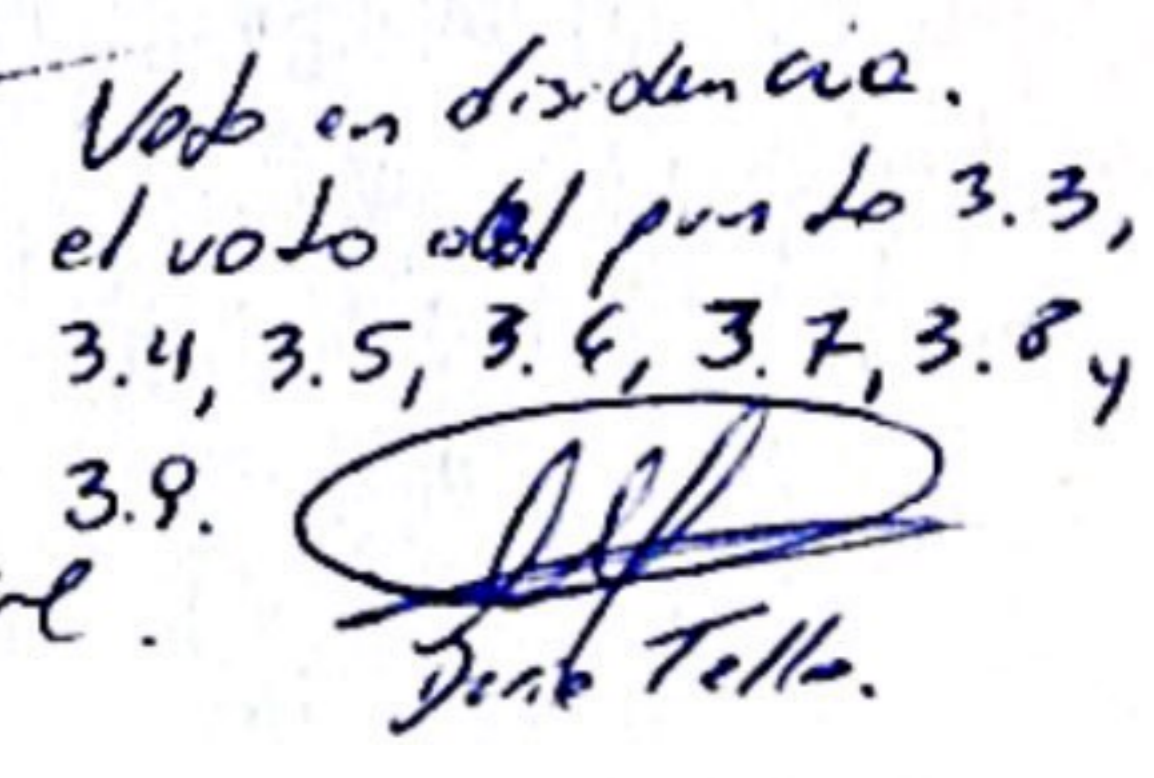 Voto en disidencia.
el voto del punto 3.3,
3.4, 3.5, 3.6, 3.7, 3.8 y
3.9.
Tello.